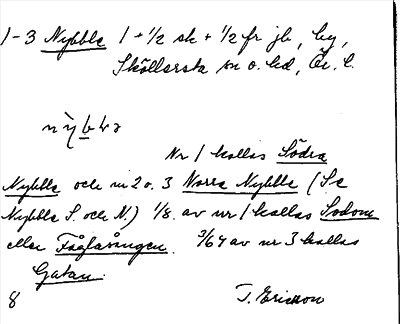 1-3 Nybble 1 + 1/2 sk + 1/2 fr jb, by,
Sköllersta sn o. hd, Ör. l.
Nr 1 kallas Södra
Nybble och nr 2 o. 3 Norra Nybble (Se
Nybble S. och N.) 1/8 av nr 1 kallas Sodom
eller Fågelsången. 3/64 av nr 3 kallas
Gatan.
8 T. Ericsson